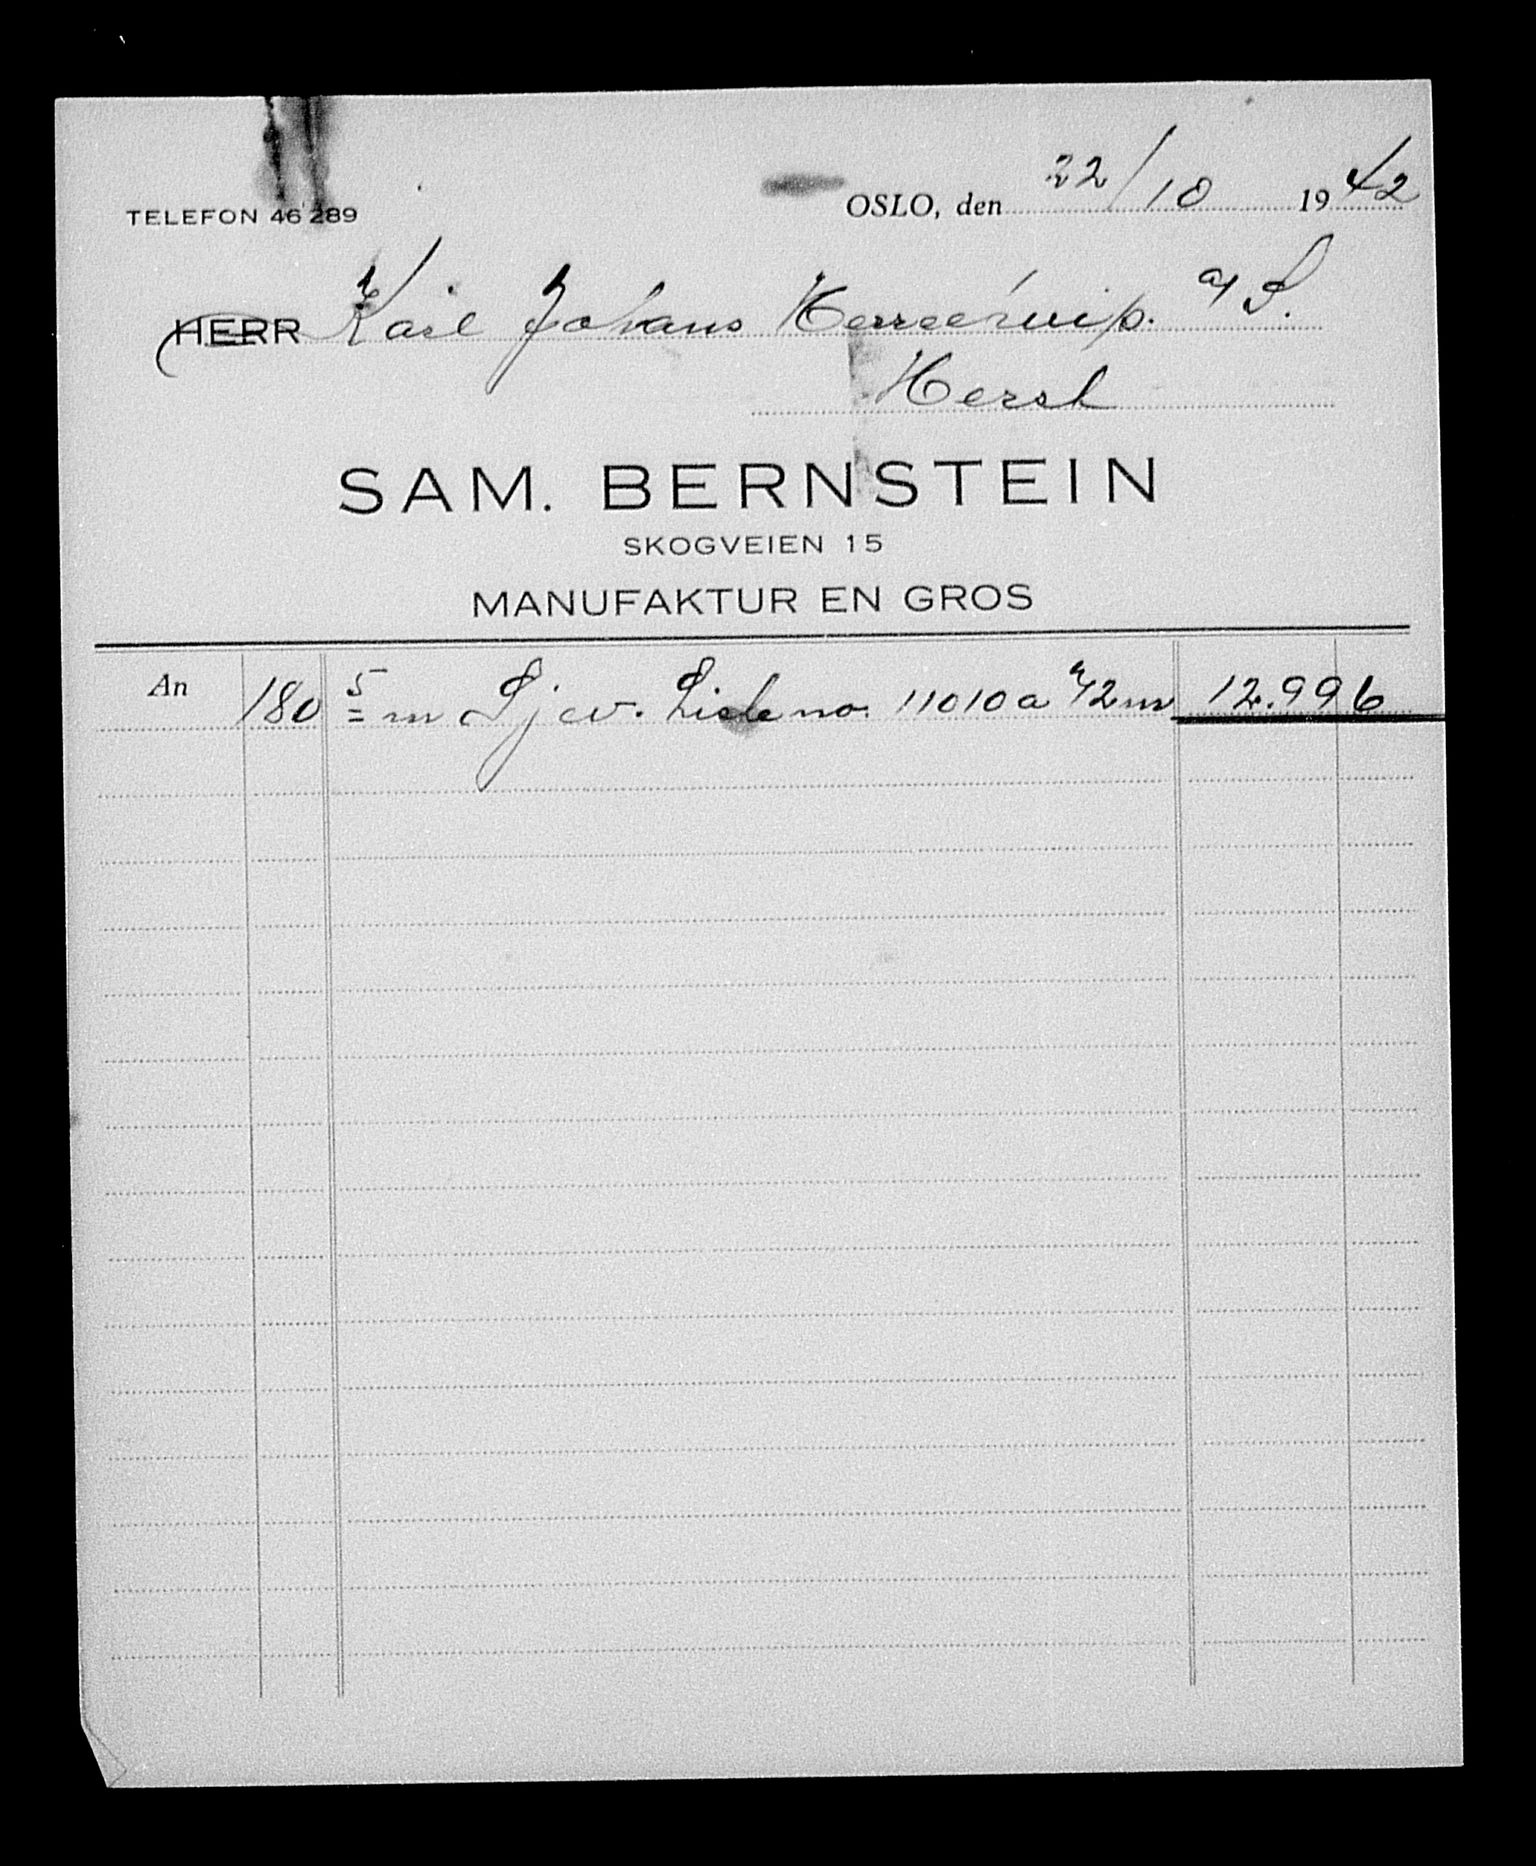 TELEFON 46 289
OSLO, den 22/10 1942
HERR Karl Johans Herreekvip. A/S.
SAM. BERNSTEIN
SKOGVEIEN 15
MANUFAKTUR EN GROS
An 180 5 m no. 11010 a 72 m 12.996